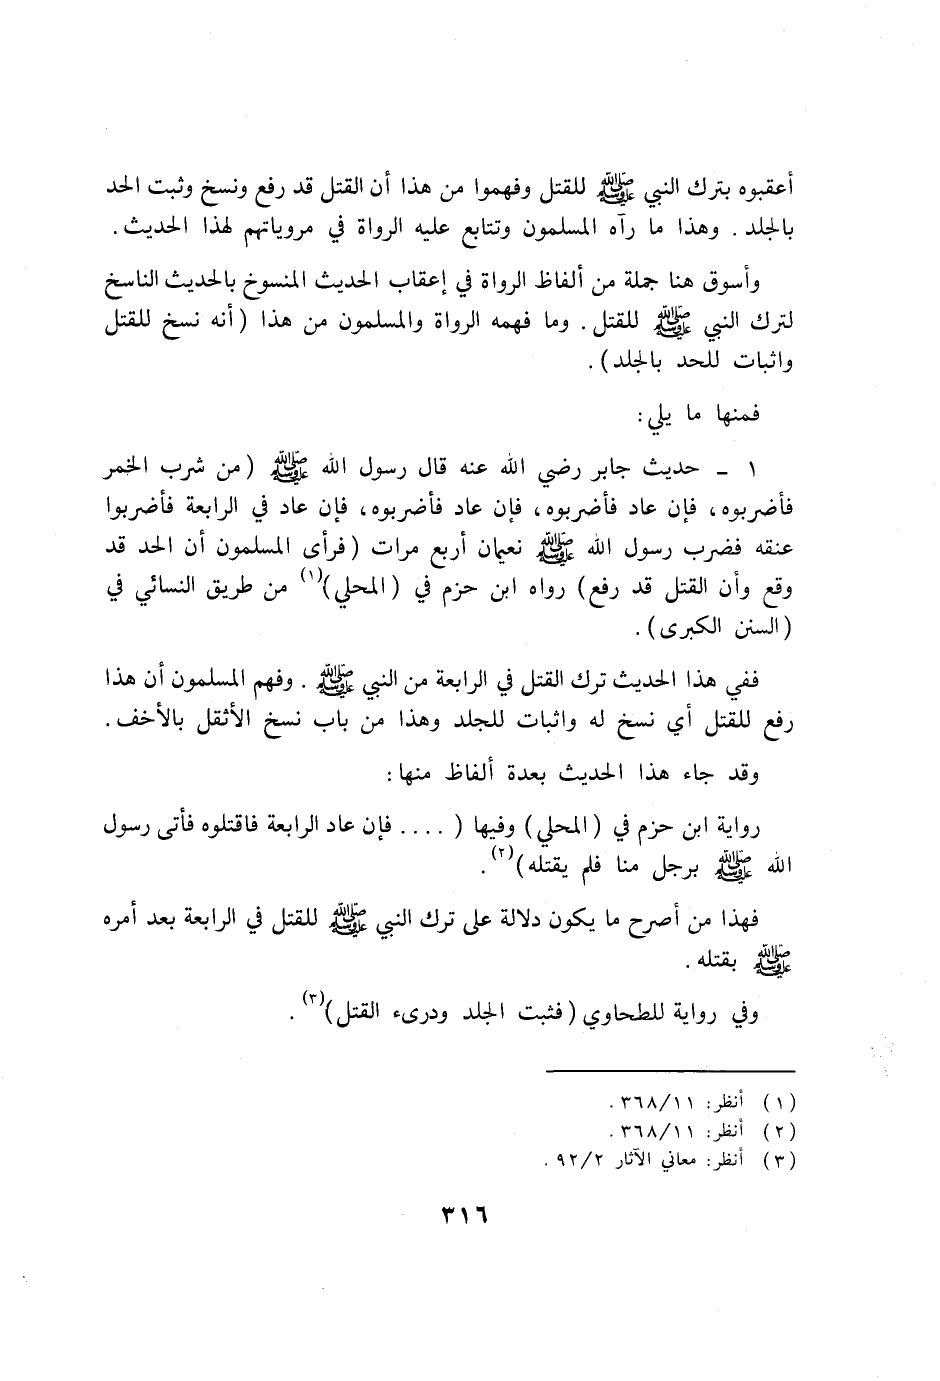 أعقبوه بترك النبي ﷺ للقتل وفهموا من هذا أن القتل قد رفع ونسخ وثبت الحد
بالجلد . وهذا ما رآه المسلمون وتتابع عليه الرواة في مروياتهم لهذا الحديث .
وأسوق هنا جملة من ألفاظ الرواة في إعقاب الحديث المنسوخ بالحديث الناسخ
لترك النبي ﷺ للقتل . وما فهمه الرواة والمسلمون من هذا (أنه نسخ للقتل
واثبات للحد بالجلد) .
فمنها ما يلي :
١ - حديث جابر رضي الله عنه قال رسول الله ﷺ (من شرب الخمر
فأضربوه ، فإن عاد فأضربوه ، فإن عاد فأضربوه ، فإن عاد في الرابعة فأضربوا
عنقه فضرب رسول الله ﷺ نعيمان أربع مرات (فرأى المسلمون أن الحد قد
وقع وأن القتل قد رفع) رواه ابن حزم في (المحلي)(١) من طريق النسائي في
(السنن الكبرى) .
ففي هذا الحديث ترك القتل في الرابعة من النبي ﷺ . وفهم المسلمون أن هذا
رفع للقتل أي نسخ له واثبات للجلد وهذا من باب نسخ الأثقل بالأخف .
وقد جاء هذا الحديث بعدة ألفاظ منها :
رواية ابن حزم في (المحلي) وفيها ( .... فإن عاد الرابعة فاقتلوه فأتى رسول
الله ﷺ برجل منا فلم يقتله)(٢) .
فهذا من أصرح ما يكون دلالة على ترك النبي ﷺ للقتل في الرابعة بعد أمره
ﷺ بقتله .
وفي رواية للطحاوي (فثبت الجلد ودرىء القتل)(٣) .
(١) أنظر : ٣٦٨/١١ .
(٢) أنظر : ٣٦٨/١١ .
(٣) أنظر : معاني الآثار ٩٢/٢ .
٣١٦